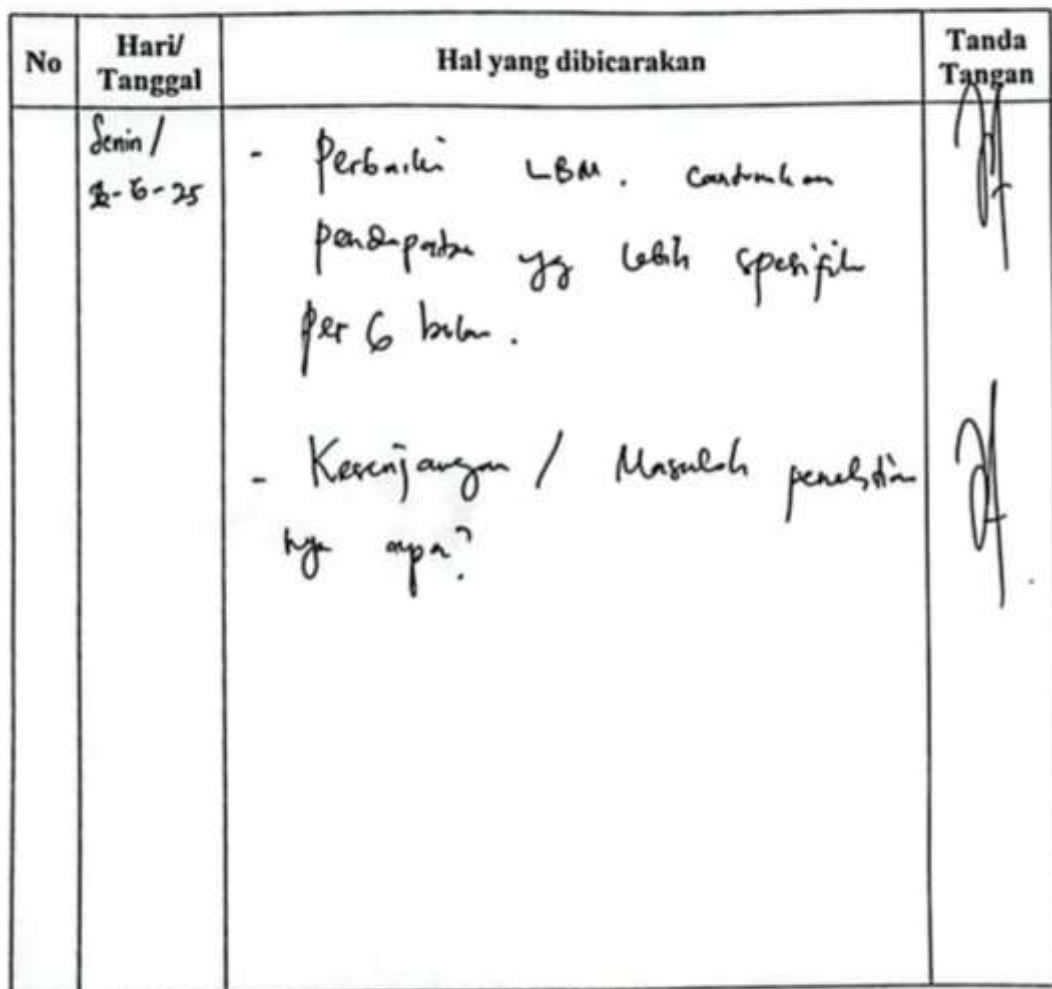 No
Hari/
Tanggal
Hal yang dibicarakan
Tanda
Tangan
Senin /
-6-25
- Perbaiki LBM. cantumkan
pendapatan yg lebih spesifik
per 6 bulan.
- Kesenjangan / Masalah penelitian
nya apa?